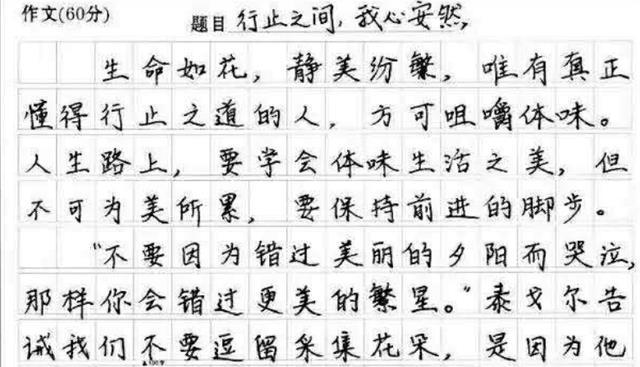 作文(60分) 题目 行止之间,我心安然
生命如花，静美纷繁，唯有真正
懂得行止之道的人，方可咀嚼体味。
人生路上，要学会体味生活之美，但
不可为美所累，要保持前进的脚步。
“不要因为错过美丽的夕阳而哭泣,
那样你会错过更美的繁星。”泰戈尔告
诫我们不要逗留采集花朵，是因为他
▲100字